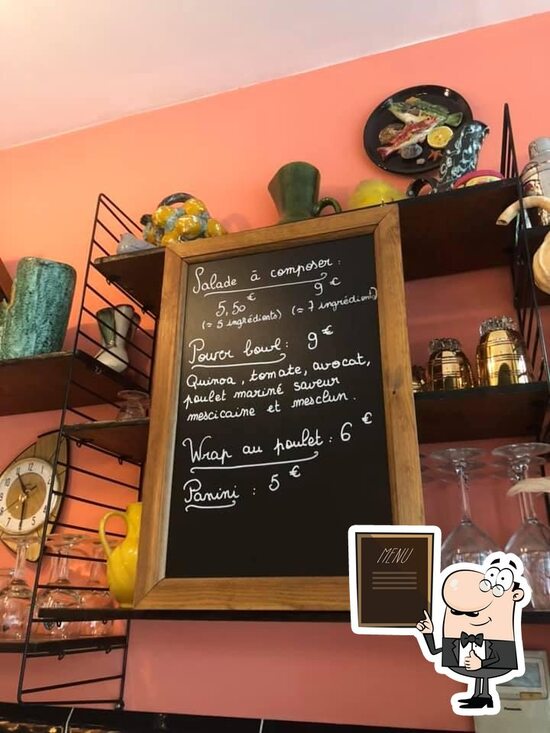 Salade à composer :
5,50€ 9€
(= 5 ingrédients) (= 7 ingrédients)
Power bowl : 9€
Quinoa, tomate, avocat,
poulet mariné saveur
mescicaine et mesclun.
Wrap au poulet : 6€
Panini : 5€
MENU